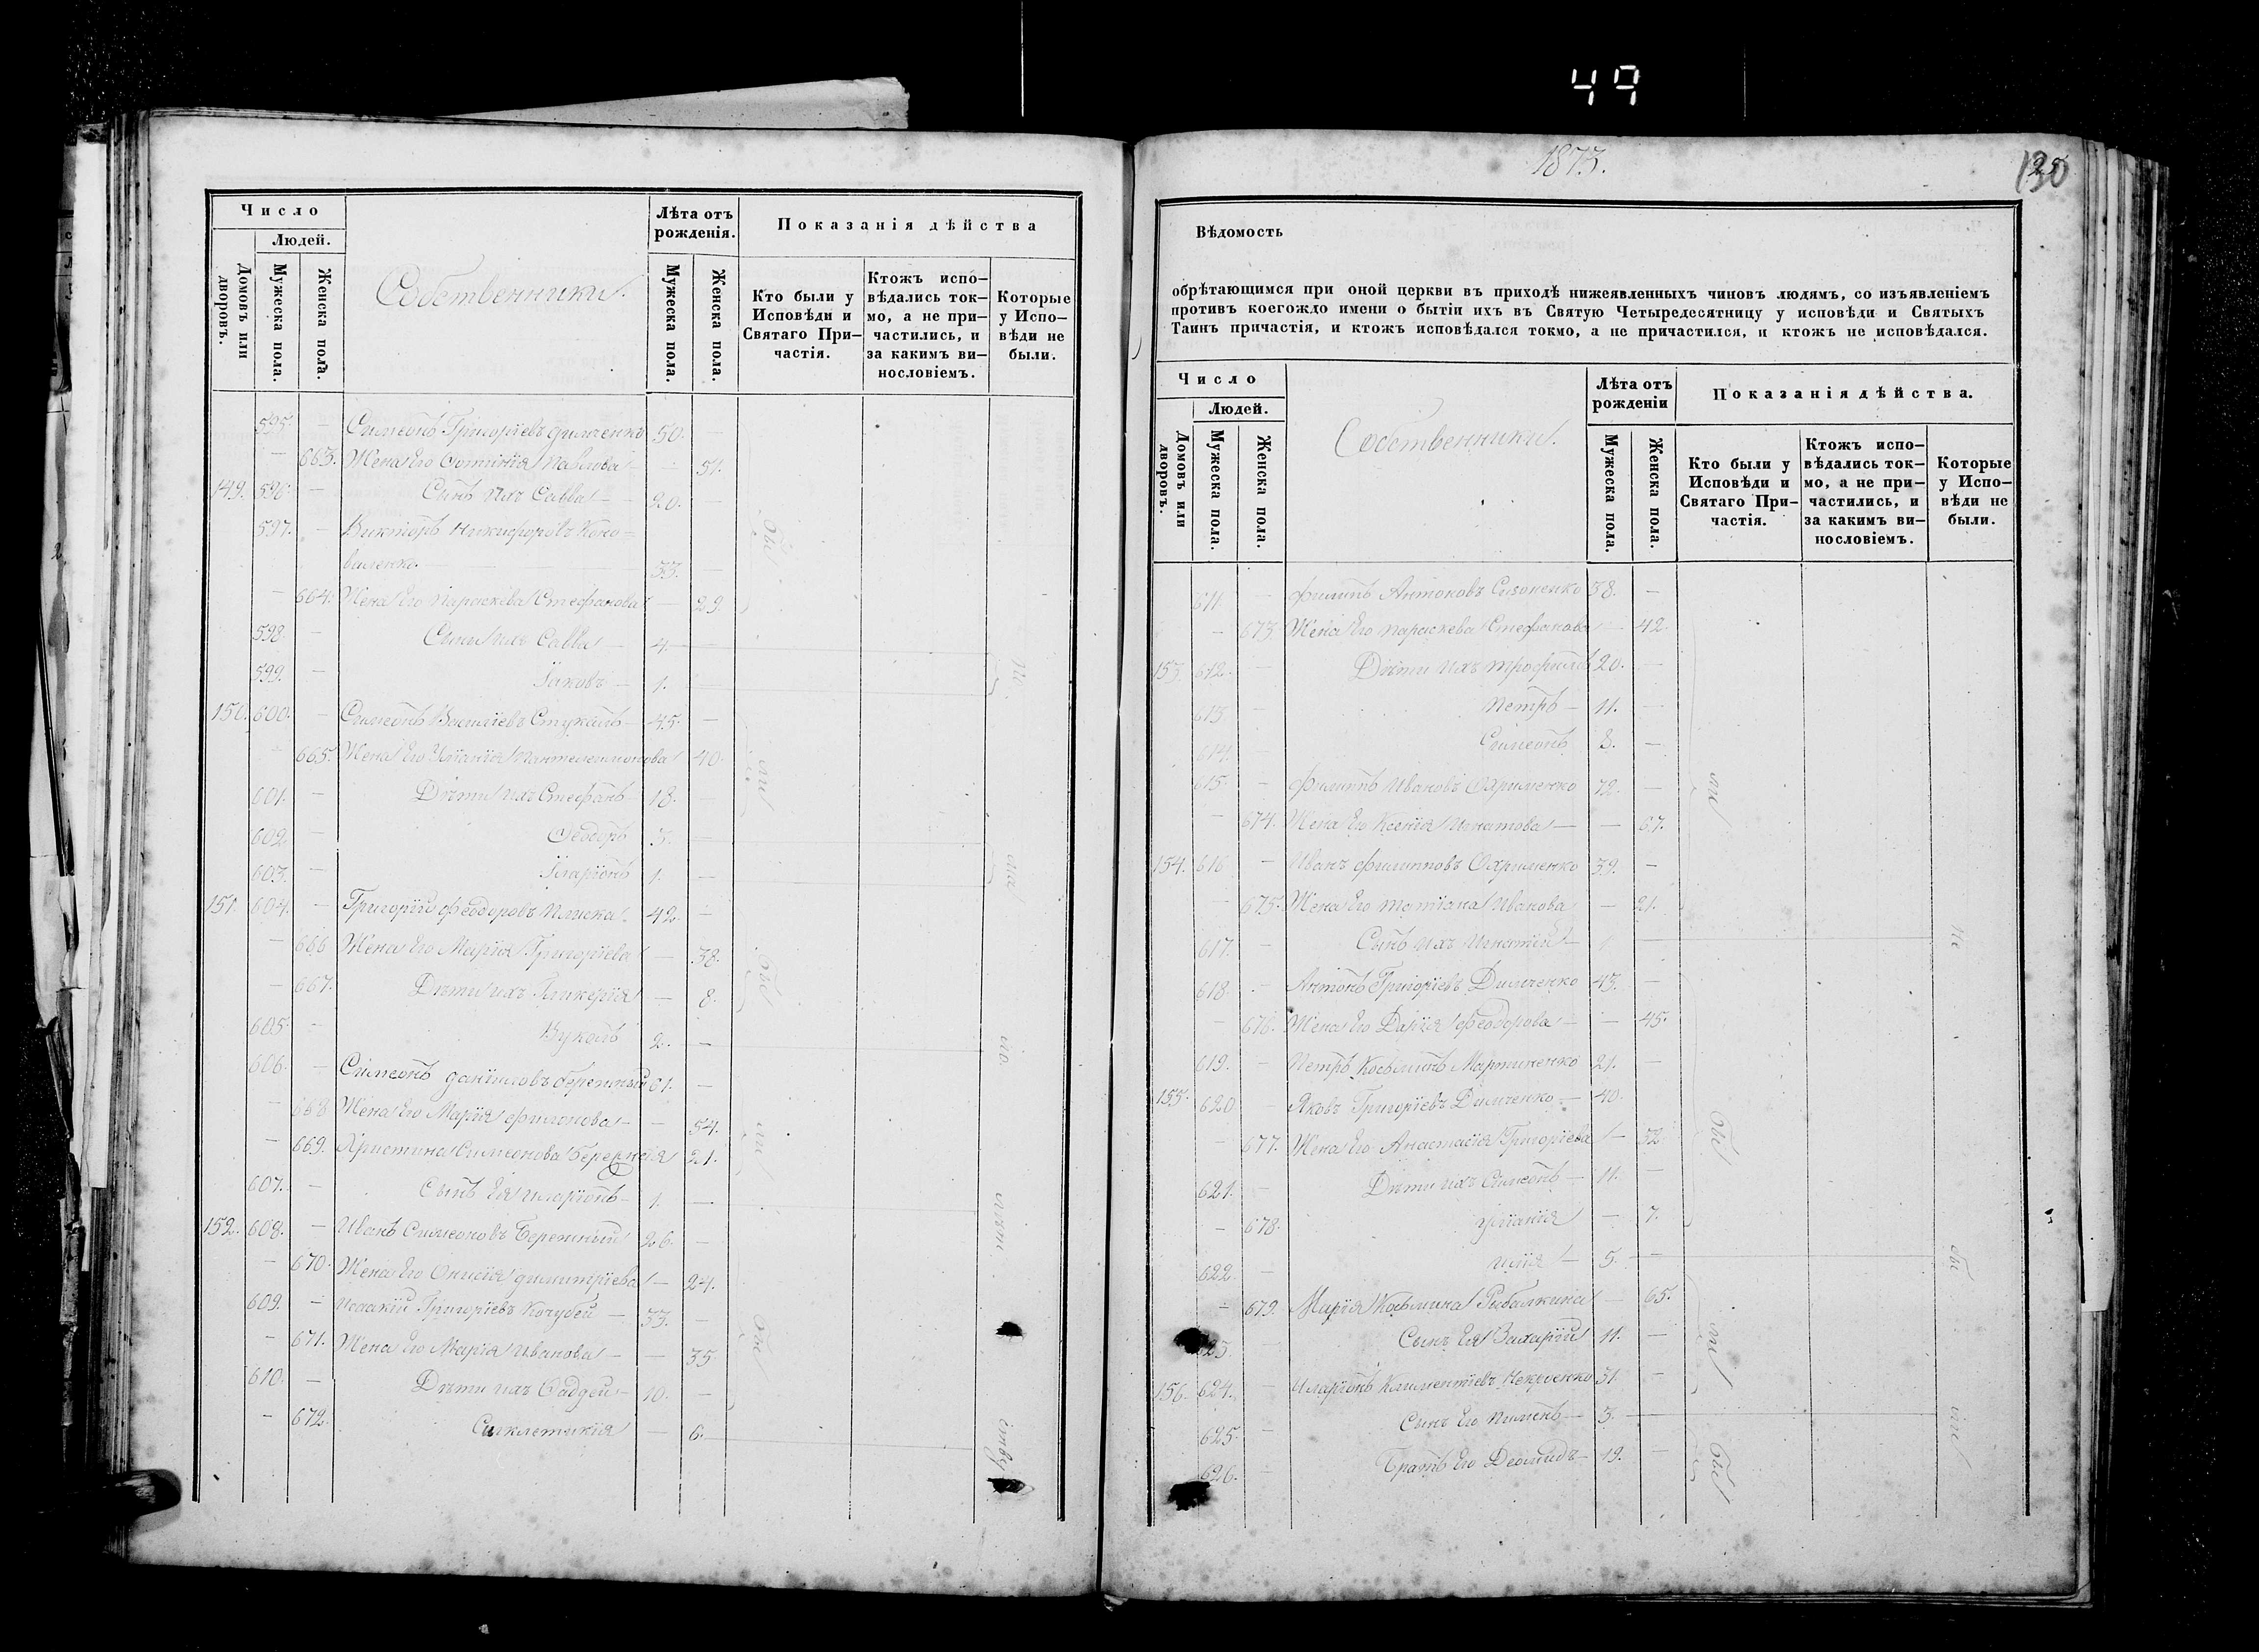 49
Число
Людей.
Домовъ или дворовъ.
Мужеска пола.
Женска пола.
Собственники.
Лѣта отъ рожденія.
Мужеска пола.
Женска пола.
Показанія дѣйства
Кто были у Исповѣди и Святаго Причастія.
Ктожъ исповѣдались токмо, а не причастились, и за какимъ винословіемъ.
Которые у Исповѣди не были.
595. — Симеонъ Григоріевъ 50. —
— 663. Жена Его Фотинія Павлова — 51.
149. 596. — Сынъ Ихъ Савва — 20. —
597. — Викторъ Никифоровъ Коно-
валенко. — 33. —
— 664. Жена Его Параскева Стефанова — 29.
598. — Сыны Ихъ Савва — 4. —
599. — Іаковъ — 1. —
150. 600. — Симеонъ Василіевъ Стукалъ — 45. —
— 665. Жена Его Уліанія Пантелеимонова 40.
601. — Дѣти Ихъ Стефанъ 18. —
602 — Ѳеодоръ 3. —
603. — Іларіонъ 1. —
151. 604. — Григорій Феодоровъ 42. —
— 666 Жена Его Марія Григоріева — 38.
— 667. Дѣти Ихъ Гликерія — 8.
605. — Вуколъ 2. —
606. — Симеонъ Даніиловъ Бережный 61. —
— 668 Жена Его Марія Филонова — 54.
— 669. Христина Симеонова Бережная 21.
607. — Сынъ Ея Иларіонъ — 1. —
152. 608. — Иванъ Симеоновъ Бережный 26. —
— 670. Жена Его Онисія Димитріева — 24.
609. — Исаакій Григоріевъ Кочубей — 33. —
— 671. Жена Его Марія Иванова — 35.
610. — Дѣти Ихъ Фадей — 10. —
— 672. Синклетикія — 6.
бы
ли
бы
ли
бы
1873.
130
Вѣдомость
обрѣтающимся при оной церкви въ приходѣ нижеявленныхъ чиновъ людямъ, со изъявленіемъ
противъ коегождо имени о бытіи ихъ въ Святую Четыредесятницу у исповѣди и Святыхъ
Таинъ причастія, и ктожъ исповѣдался токмо, а не причастился, и ктожъ не исповѣдался.
Число
Людей.
Домовъ или дворовъ.
Мужеска пола.
Женска пола.
Собственники.
Лѣта отъ рожденіи
Мужеска пола.
Женска пола.
Показанія дѣйства.
Кто были у Исповѣди и Святаго Причастія.
Ктожъ исповѣдались токмо, а не причастились, и за какимъ винословіемъ.
Которые у Исповѣди не были.
611. — Филипъ Антоновъ Сизоненко 38. —
— 673. Жена Его Параскева Стефанова — 42.
153. 612. — Дѣти Ихъ Трофимъ 20. —
613 — Петръ — 11. —
614. — Симеонъ 8. —
615. — Филиппъ Ивановъ Охрименко 72. —
— 674. Жена Его Ксенія Игнатова — — 67.
154. 616 — Иванъ Филипповъ Охрименко 39. —
— 675. Жена Его Татіана Иванова — 21.
617. — Сынъ Ихъ Игнатій — 1
618 — Антонъ Григоріевъ Димченко 43. —
— 676. Жена Его Дарія Феодорова — — 45.
619. — Петръ Косьминъ Мартиненко 21. —
155. 620 — Яковъ Григоріевъ Димченко — 40. —
— 677. Жена Его Анастасія Григоріева — 32
621. — Дѣти Ихъ Симеонъ — 11. —
— 678. Уліанія — 7.
622. — Илія — 5. —
— 679. Марія Косьмина Рибалкина — 65.
623. — Сынъ Ея Захарій 11. —
156. 624. — Иларіонъ Климентіевъ 31. —
625. — Сынъ Его Пименъ — 3. —
626. — Братъ Его Деомидъ — 19. —
ли
бы
ли
бы
не
бы